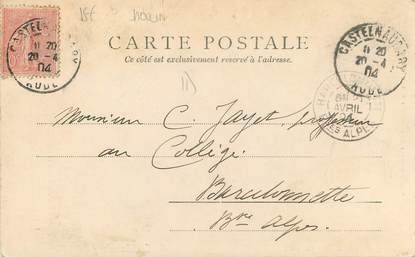 CARTE POSTALE
Ce côté est exclusivement réservé à l'adresse.
CASTELNAUDARY
11 20
20 - 4
04
AUDE
CASTELNAUDARY
11 20
20 - 4
04
AUDE
AVRIL
ALPES
Monsieur C. Jayet, professeur
au Collège
Barcelonnette
Bses Alpes.